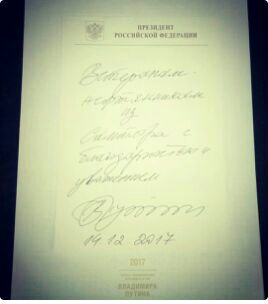 ПРЕЗИДЕНТ
РОССИЙСКОЙ ФЕДЕРАЦИИ
Ветеранам -
нефтяникам
из
Самотлора с
благодарностью и
уважением
14.12.2017
2017
ВЛАДИМИРА
ПУТИНА